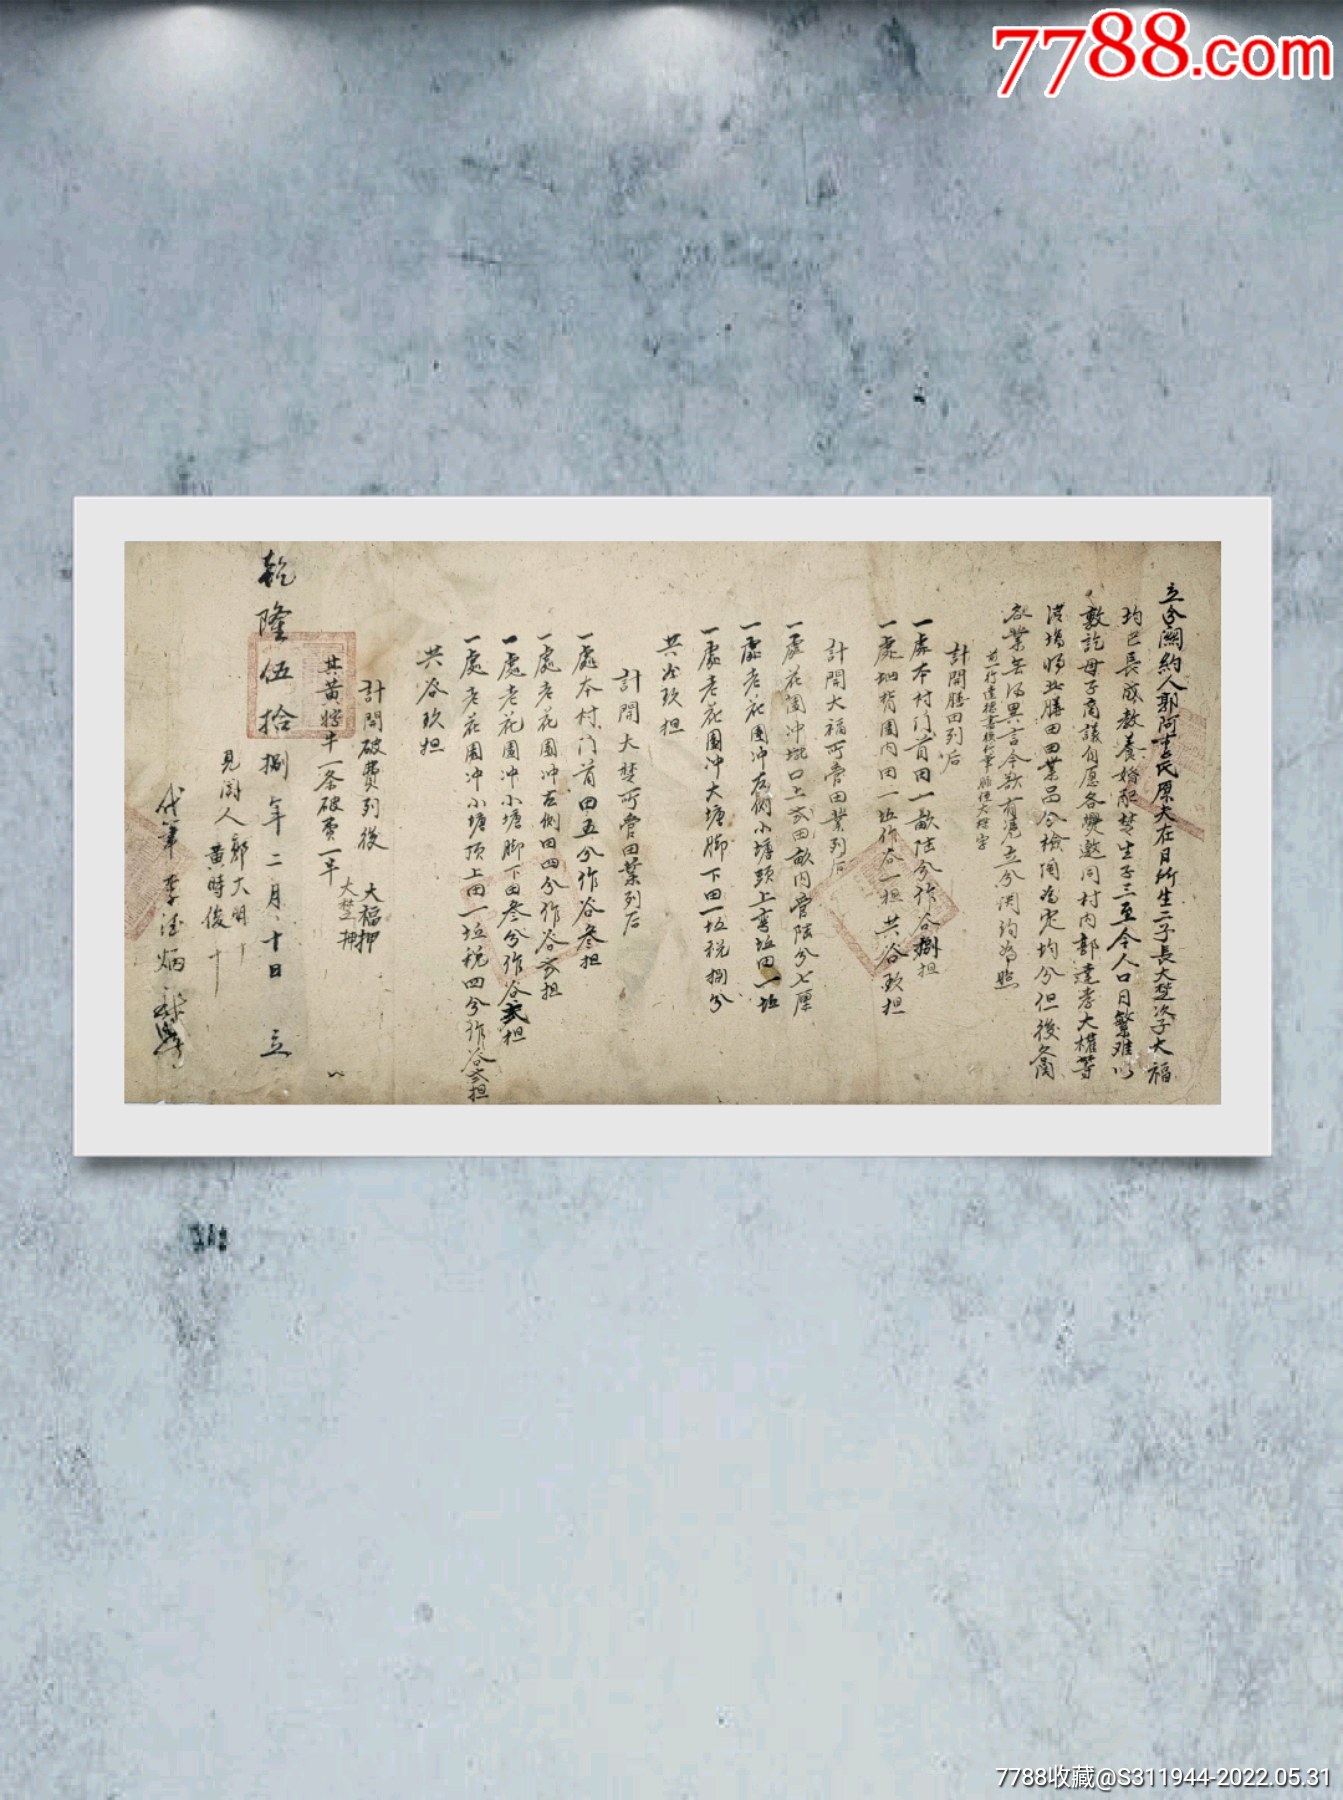 7788.com
立分關約人郭阿李氏原夫在日所生二子長大楚次子大福
均已長成教養婚配楚生子三至今人口日繁难以
敦訖母子商議自愿各爨邀同村内郭達孝大權等
將此膳田田業品分檢阄為定均分但後各阄
各業無得異言今欲有憑立分関約為照
計開膳田列后
一處本村门首田一畝陆分作谷捌担
一處地背園内田一坵作谷一担共谷玖担
計開大福所管田業列后
一處花園冲垅口上弍田畝内管陆分七厘
一處老花園冲左側小塘頭上弯坵田一坵
一處老花園冲大塘脚下田一坵税捌分
共谷玖担
計開大楚所管田業列后
一處本村门首田五分作谷叁担
一處老花園冲左側田四分作谷弍担
一處老花園冲小塘脚下田叁分作谷弍担
一處老花園冲小塘顶上田一坵税四分作谷弍担
共谷玖担
計開破費列後
大福押
大楚押
其黄牸牛一条破費一半
乾隆伍拾捌年二月十日立
見関人郭大明
黄時俊
代筆李
7788收藏@S311944-2022.05.31